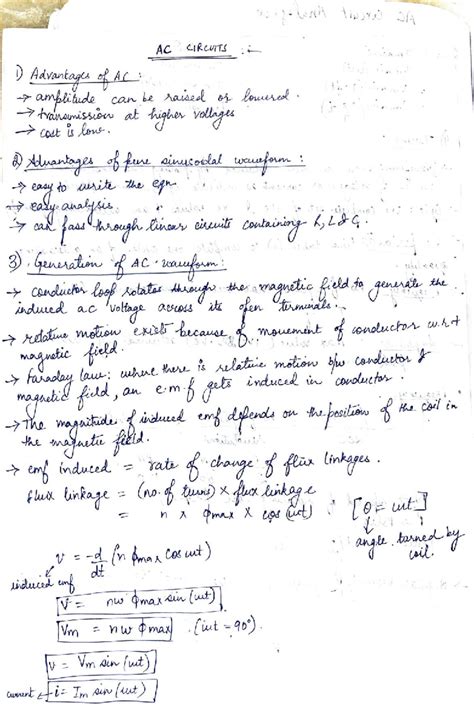 AC CIRCUITS :-
1) Advantages of AC :
→ amplitude can be raised or lowered.
→ transmission at higher voltages
→ cost is low.
2) Advantages of pure sinusoidal waveform :
→ easy to write the eqn.
→ easy analysis.
→ can pass through linear circuits containing R, L & C.
3) Generation of AC waveform :
→ conductor loop rotates through the magnetic field to generate the
induced a.c voltage across its open terminals.
→ relative motion exists because of movement of conductor w.r.t
magnetic field.
→ Faraday law: where there is relative motion b/w conductor &
magnetic field, an e.m.f gets induced in conductor.
→ The magnitude of induced emf depends on the position of the coil in
the magnetic field.
→ emf induced = rate of change of flux linkages.
flux linkage = (no. of turns) X flux linkage
= n X ϕmax X cos (ωt) [θ = ωt]
angle turned by
coil.
v = -d/dt (n ϕmax cos ωt)
induced emf
V = nω ϕmax sin (ωt)
Vm = nω ϕmax . (ωt = 90°).
v = Vm sin (ωt)
current ← i = Im sin (ωt)